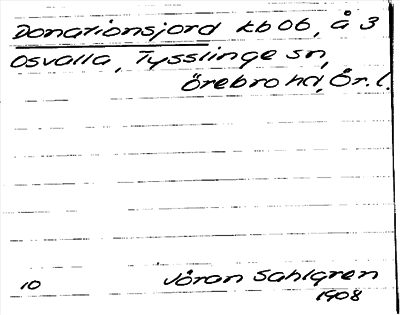 Donationsjord kb 06, å 3
Osvalla, Tysslinge sn,
Örebro hd, Ör. l.
10 Jöran Sahlgren
1908